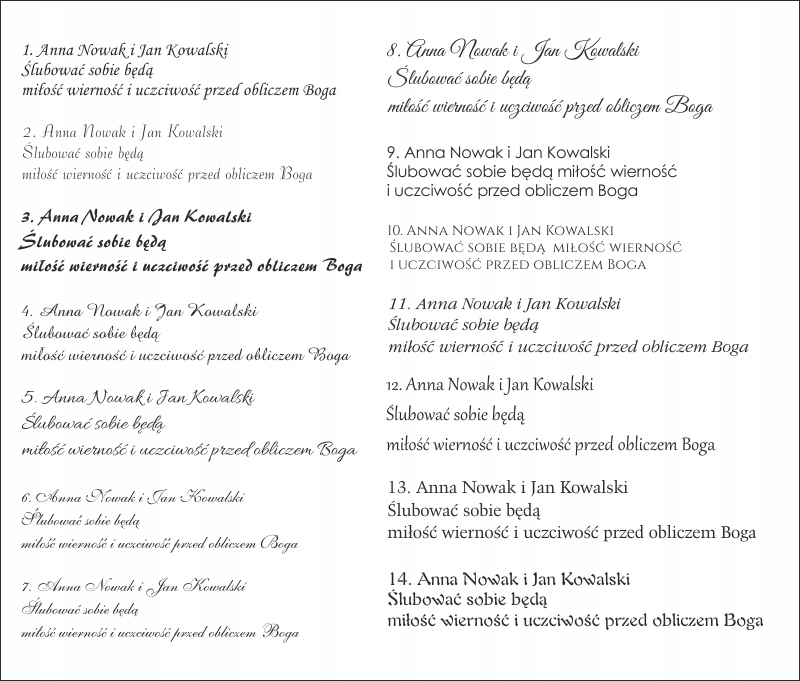 1. Anna Nowak i Jan Kowalski
Ślubować sobie będą
miłość wierność i uczciwość przed obliczem Boga
2. Anna Nowak i Jan Kowalski
Ślubować sobie będą
miłość wierność i uczciwość przed obliczem Boga
3. Anna Nowak i Jan Kowalski
Ślubować sobie będą
miłość wierność i uczciwość przed obliczem Boga
4. Anna Nowak i Jan Kowalski
Ślubować sobie będą
miłość wierność i uczciwość przed obliczem Boga
5. Anna Nowak i Jan Kowalski
Ślubować sobie będą
miłość wierność i uczciwość przed obliczem Boga
6. Anna Nowak i Jan Kowalski
Ślubować sobie będą
miłość wierność i uczciwość przed obliczem Boga
7. Anna Nowak i Jan Kowalski
Ślubować sobie będą
miłość wierność i uczciwość przed obliczem Boga
8. Anna Nowak i Jan Kowalski
Ślubować sobie będą
miłość wierność i uczciwość przed obliczem Boga
9. Anna Nowak i Jan Kowalski
Ślubować sobie będą miłość wierność
i uczciwość przed obliczem Boga
10. Anna Nowak i Jan Kowalski
Ślubować sobie będą miłość wierność
i uczciwość przed obliczem Boga
11. Anna Nowak i Jan Kowalski
Ślubować sobie będą
miłość wierność i uczciwość przed obliczem Boga
12. Anna Nowak i Jan Kowalski
Ślubować sobie będą
miłość wierność i uczciwość przed obliczem Boga
13. Anna Nowak i Jan Kowalski
Ślubować sobie będą
miłość wierność i uczciwość przed obliczem Boga
14. Anna Nowak i Jan Kowalski
Ślubować sobie będą
miłość wierność i uczciwość przed obliczem Boga